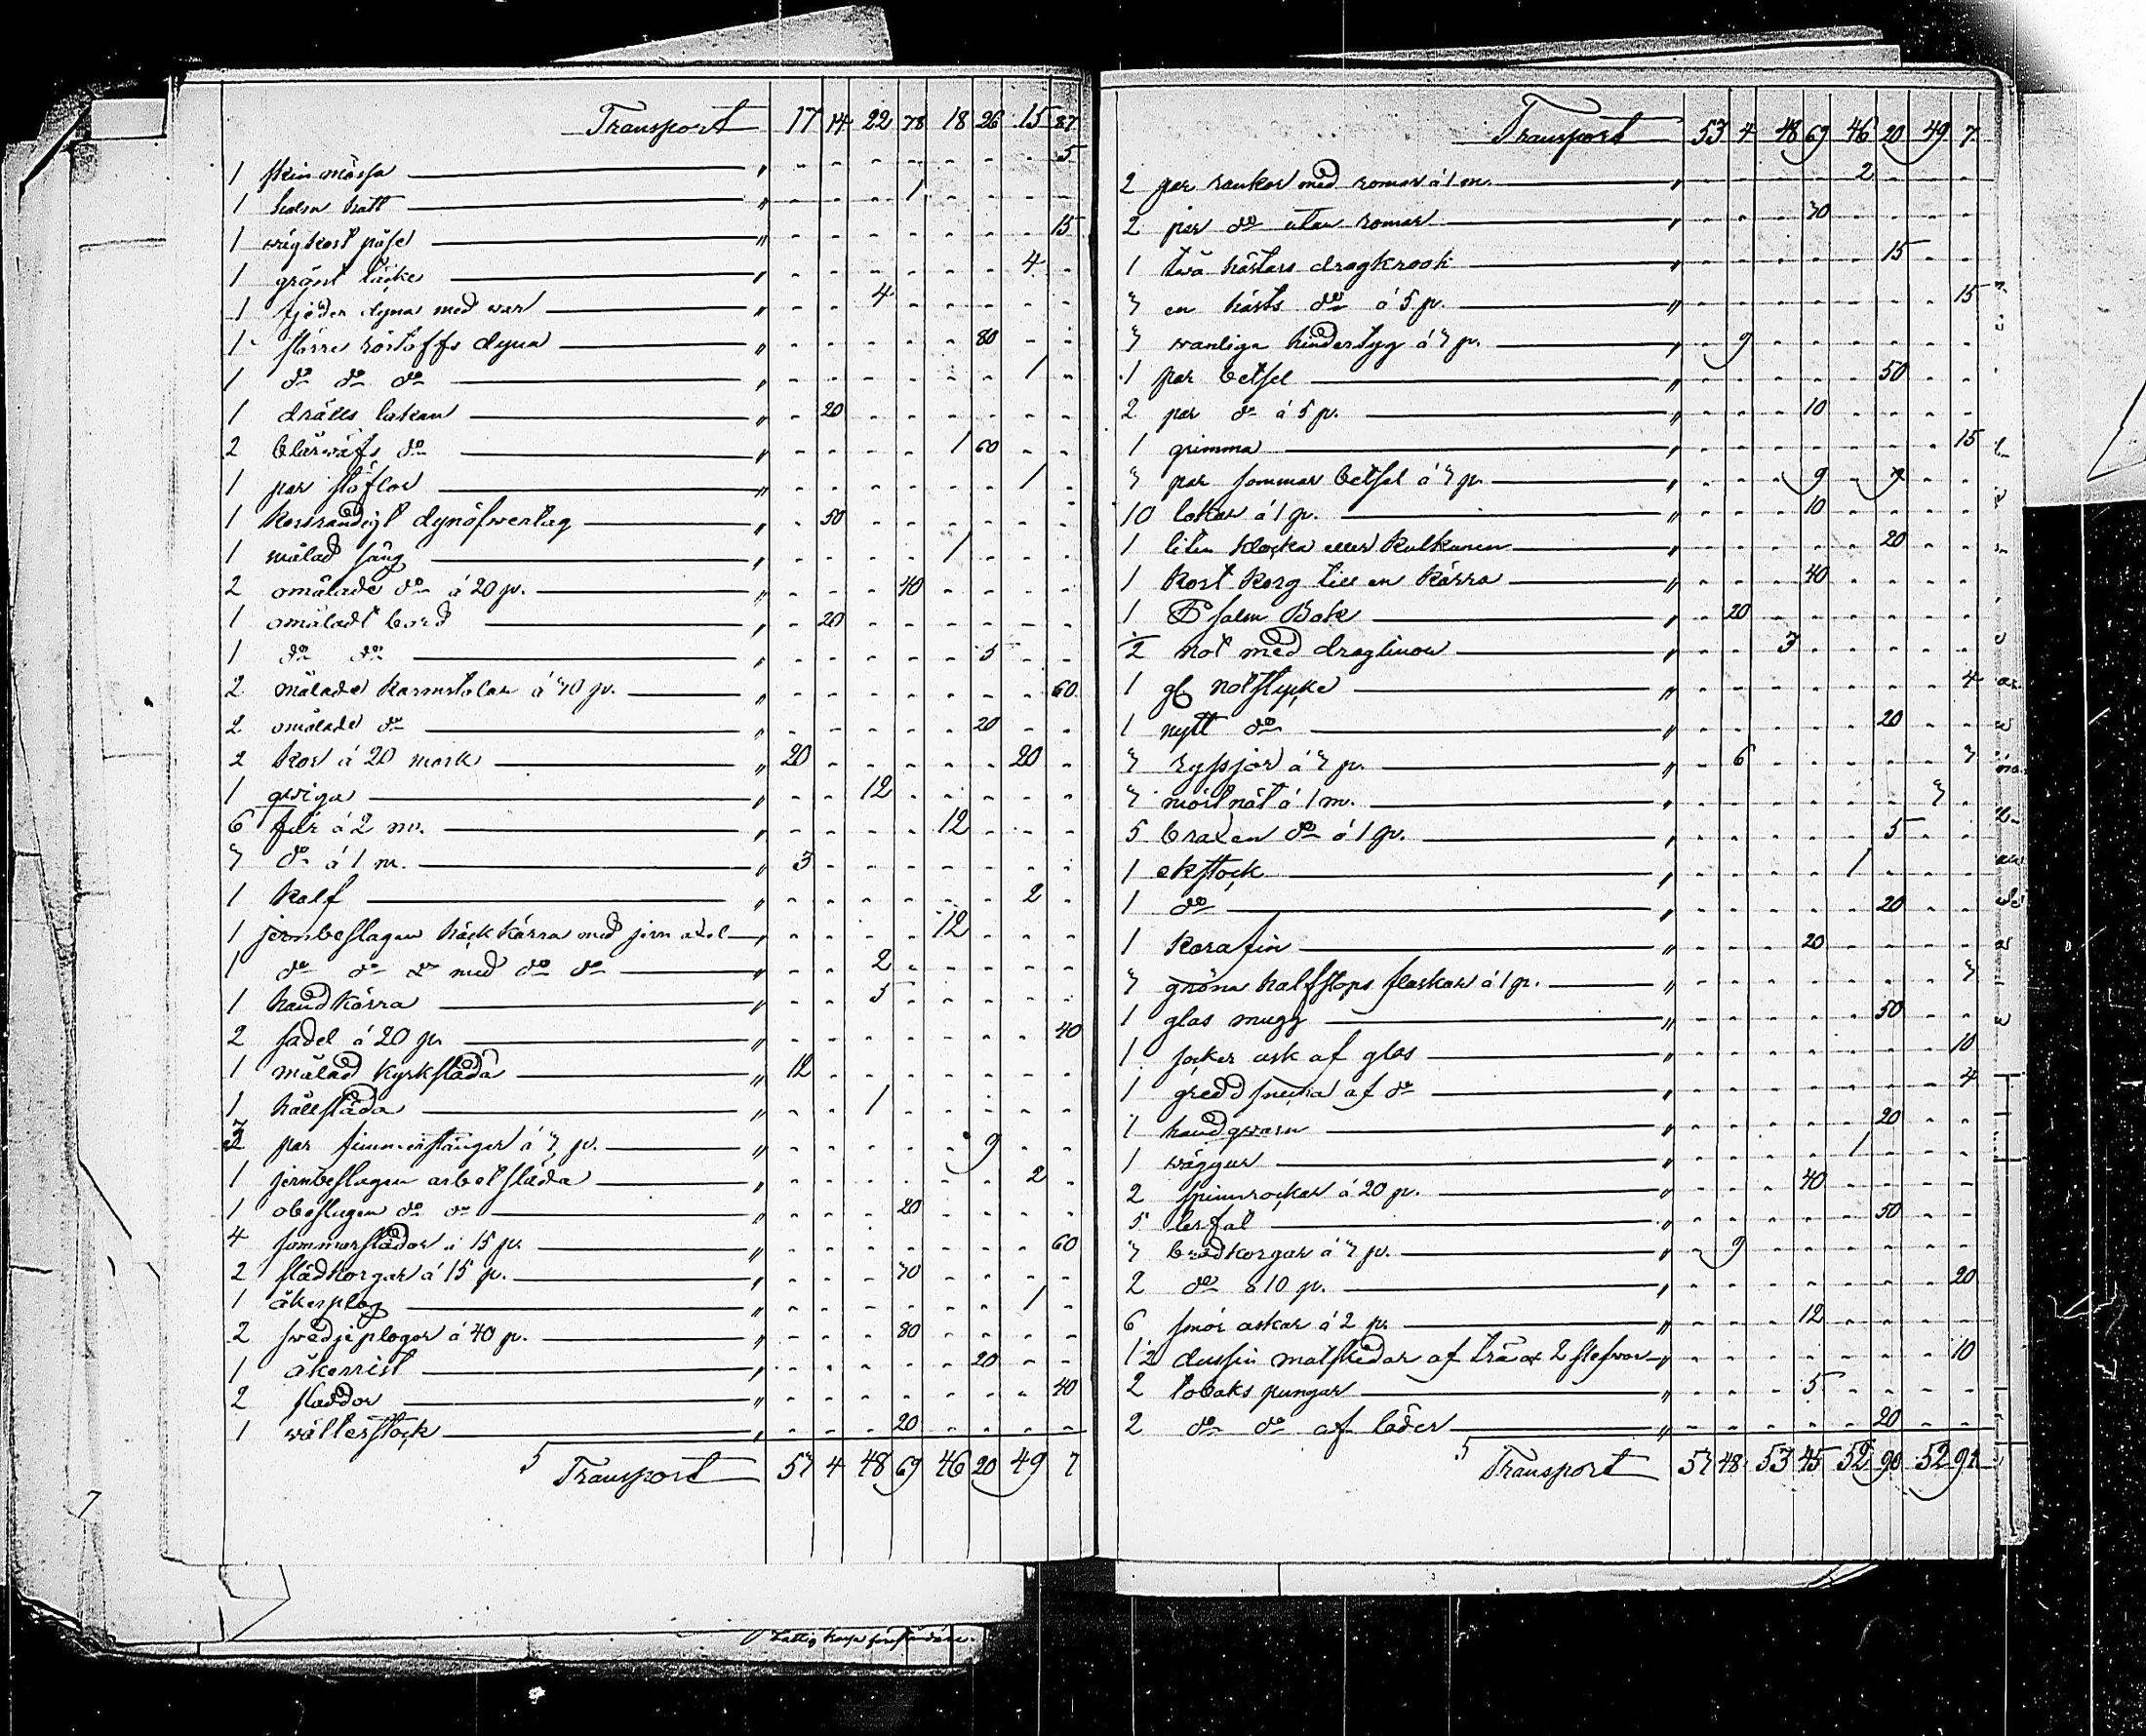 Transport 17 14 22 78 18 26 15 87
1 skin mössa 5
1 halm hatt 1
1 wägkost påse 15
1 grönt täcke 4
1 fjöder dyna med war 4
1 större röstoffs dyna 80
1 do do do 1
1 drälls lakan 20
2 blärwäfs do 1 60
1 par stöflor 1
1 korsrandigt dynöfwertag 50
1 målad säng 1
2 omålade do á 20 p. 40
1 omåladt bord 20
1 do do 5
2 målade karmstolar á 30 p. 60
2 omålade do 20
2 kor á 20 mark 20 20
1 qwiga 12
6 får á 2 m. 12
3 do á 1 m. 3
1 kalf 2
1 jernbeslagen häck kärra med jern axel 12
1 do do do med do do 2
1 handkärra 5
2 sadel á 20 p. 40
1 målad kyrksläda 12
1 hällsläda 1
3 par timmerstänger á 3 p. 9
1 jernbeslagen arbetsläda 2
1 obeslagen do do 20
4 sommarslädor á 15 p. 60
2 slädkorgar á 15 p. 30
1 åkerplog 1
2 swedjeplogar á 40 p. 80
1 åkerrist 20
2 sladdor 40
1 wälterstock 20
5 Transport 53 4 48 67 46 20 49 7
Transport 53 4 48 67 46 20 49 7
2 par rankor med romor á 1 m. 2
2 par do utan romor 30
1 två hästars dragkrook 15
3 en hästs do á 5 p. 15
3 wanliga hindertyg á 3 p. 9
1 par betsel 50
2 par do á 5 p. 10
1 grimma 15
3 par sommar betsel á 3 p. 9
10 lokar á 1 p. 10
1 liten klocka eller kulkuren 20
1 kost korg till en kärra 40
1 Psalm Bok 20
1/2 not med draglinor 3
1 gl notstycke 4
1 nytt do 20
3 ryssjor á 3 p. 6 3
3 mört nät á 1 m. 3
5 braxen do á 1 p. 5
1 ekstock 1
1 do 20
1 karafin 20
3 gröna halfstops flaskor á 1 p. 3
1 glas mugg 50
1 socker ask af glas 10
1 gredd snecka af do 4
1 handqwarn 20
1 wäggur 1
2 spinnrockar á 20 p. 40
5 lerfat 50
3 brödkorgar á 3 p. 9
2 do á 10 p. 20
6 smör askar á 2 p. 12
1/2 dussin matskedar af trä o 2 slefwar 10
2 tobaks pungar 5
2 do do af läder 20
5 Transport 53 48 53 45 52 90 52 91